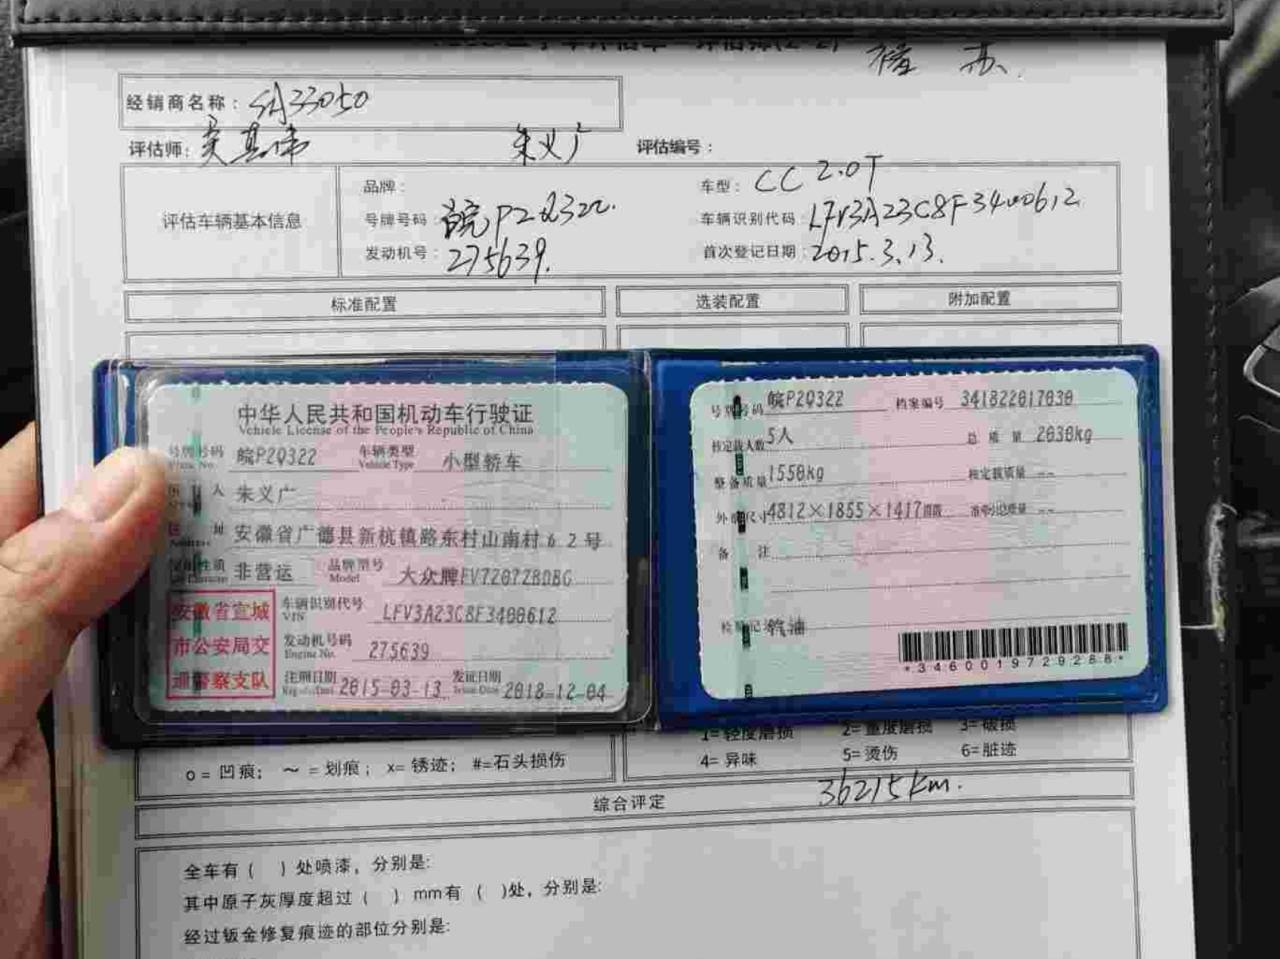 经销商名称： SA33050
评估师： 朱义广 评估编号：
评估车辆基本信息
品牌： 车型： CC 2.0T
号牌号码： 皖P2Q322. 车辆识别代码： LFV3A23C8F3400612
发动机号： 275639. 首次登记日期： 2015.3.13.
标准配置 选装配置 附加配置
中华人民共和国机动车行驶证
Vehicle License of the People's Republic of China
号牌号码 皖P2Q322 车辆类型 小型轿车
Plate No. Vehicle Type
人 朱义广
址 安徽省广德县新杭镇路东村山南村62号
Address
性质 非营运 品牌型号 大众牌FV7207ZBDBG
Model
安徽省宣城
市公安局交
通警察支队
车辆识别代号 LFV3A23C8F3400612
VIN
发动机号码 275639
Engine No.
注册日期 2015-03-13 发证日期 2018-12-04
号牌号码 皖P2Q322 档案编号 341822017030
核定载人数 5人 总质量 2030kg
整备质量 1550kg 核定载质量 --
外廓尺寸 4812×1855×1417mm 准牵引总质量 --
备注
检验记录 汽油
*3460019729268*
o=凹痕； ～=划痕； x=锈迹； #=石头损伤
1=轻度磨损 2=重度磨损 3=破损
4=异味 5=烫伤 6=脏迹
综合评定 36215km.
全车有（ ）处喷漆，分别是:
其中原子灰厚度超过（ ）mm有（ )处，分别是:
经过钣金修复痕迹的部位分别是: